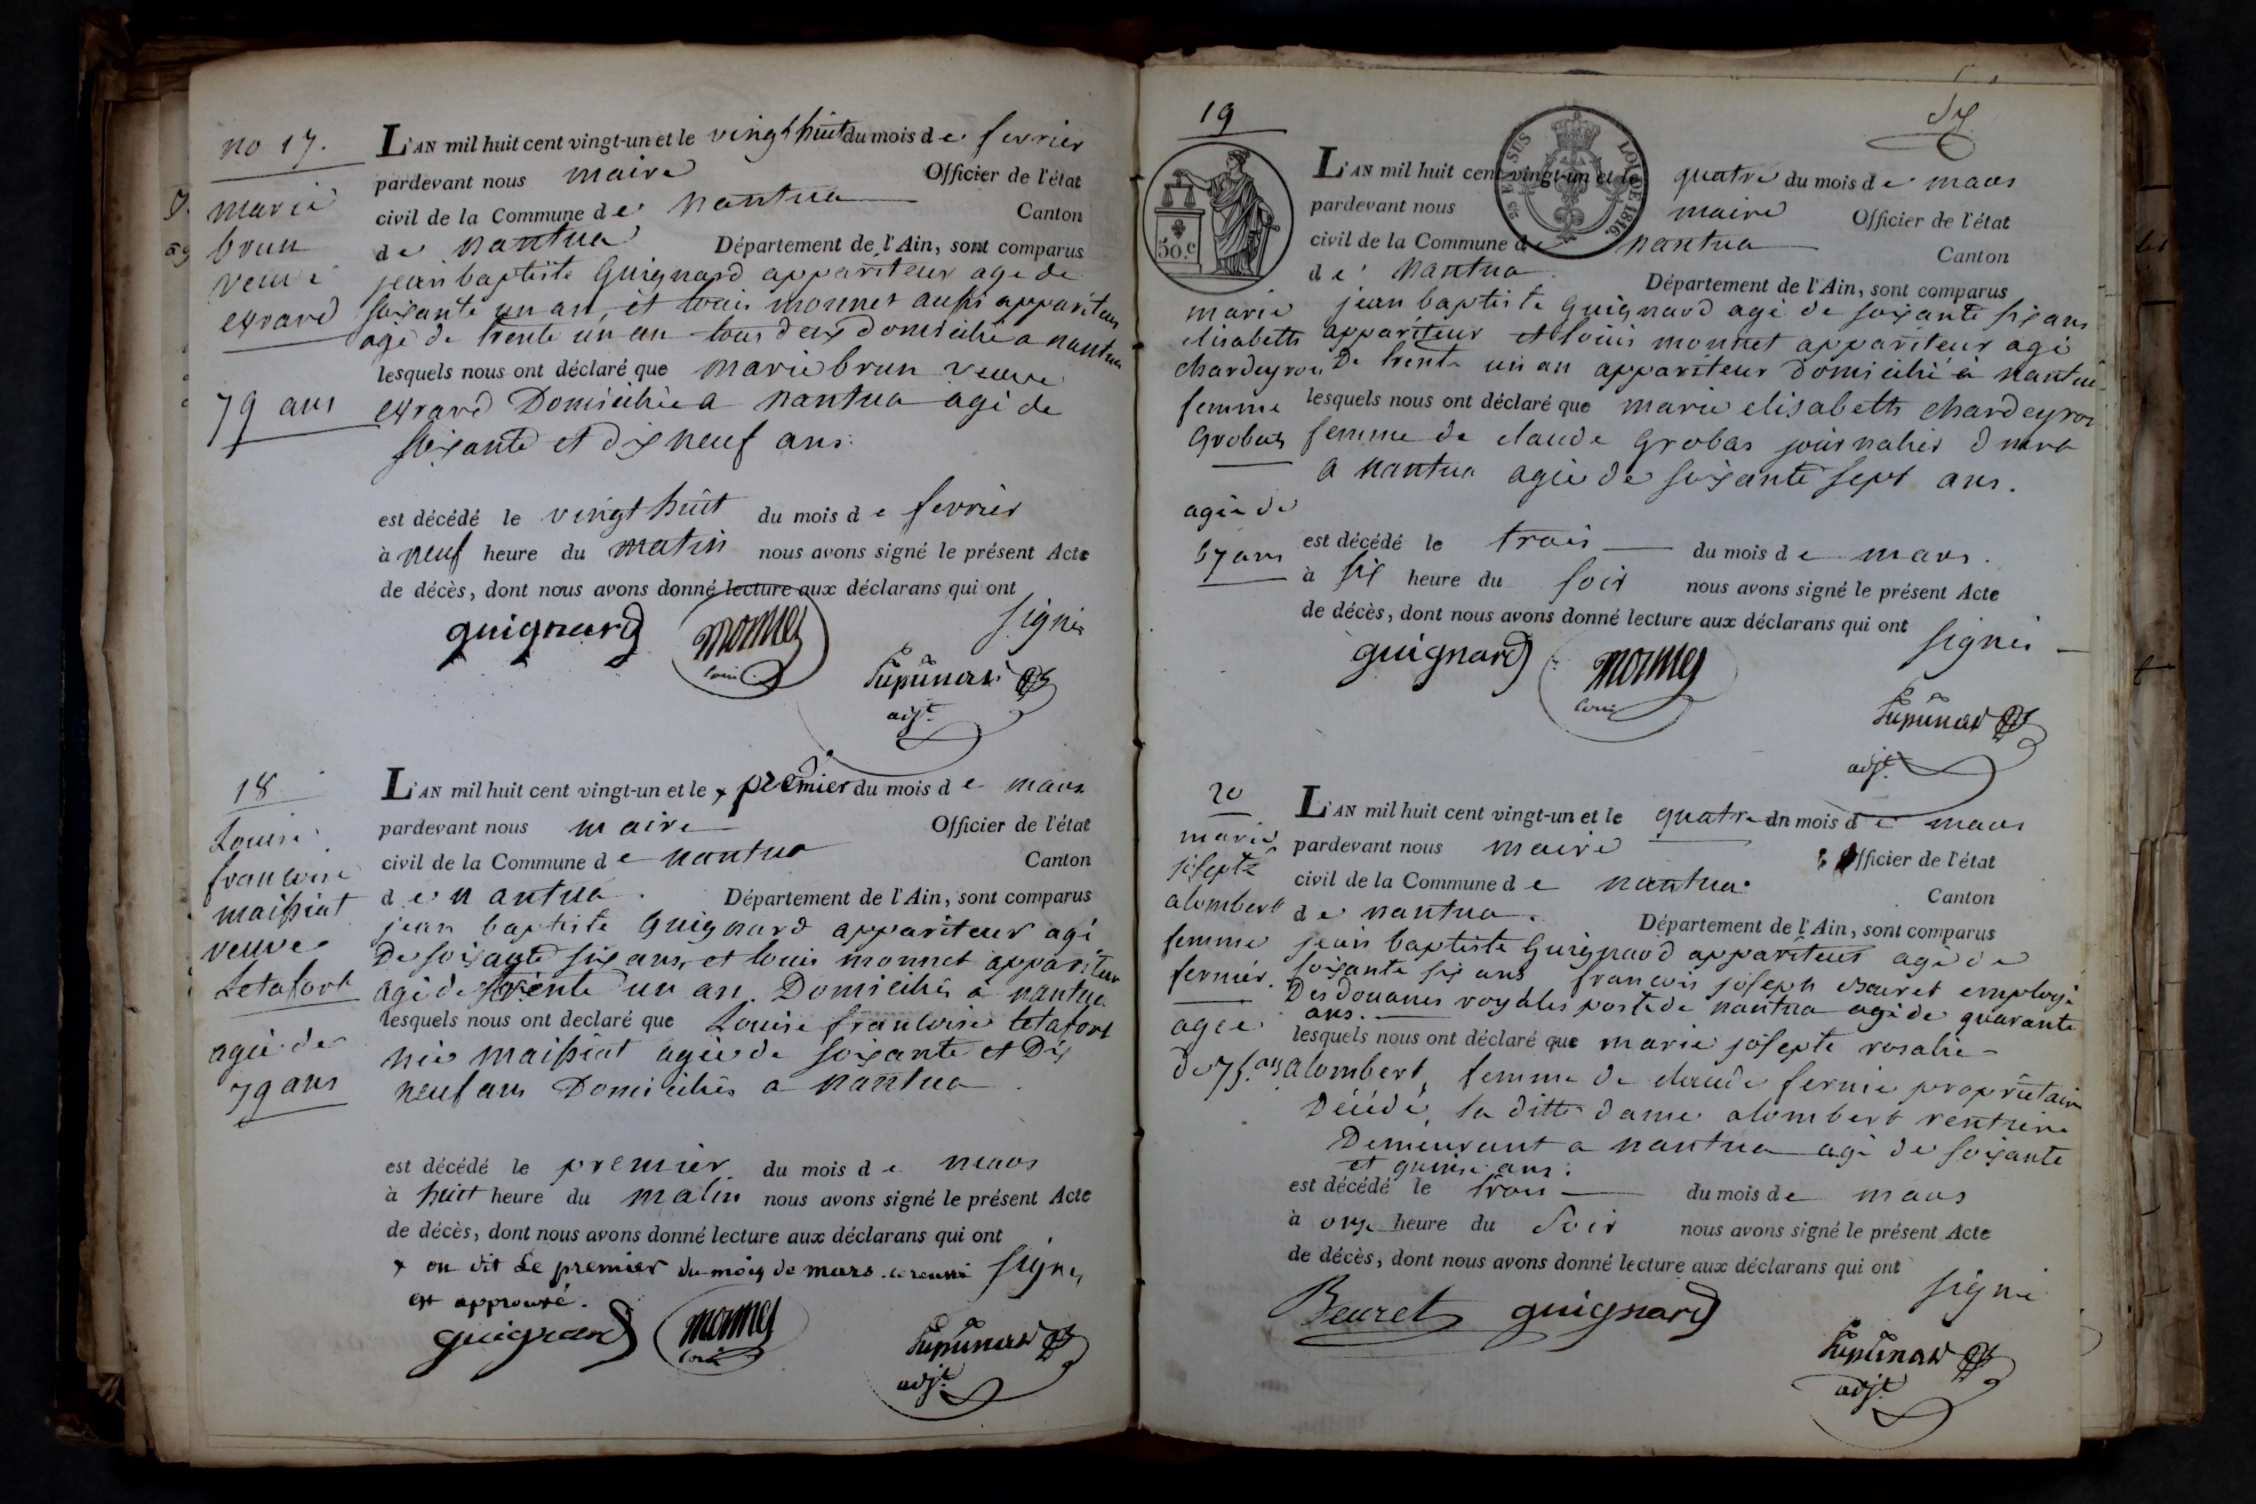 no 17.
marie
brun
veuve
exrard
79 ans
L'AN mil huit cent vingt-un et le vingt huit du mois de fevrier
pardevant nous maire Officier de l'état
civil de la Commune de nantua Canton
de nantua Département de l'Ain, sont comparus
jean baptiste Guignard appariteur agé de
soixante un an, et louis monnet aussi appariteur
agé de trente un an tous deux domicilié a nantua
lesquels nous ont déclaré que marie brun veuve
exrard Domiciliée a nantua agé de
soixante et dix neuf ans.
est décédé le vingt huit du mois de fevrier
à neuf heure du matin nous avons signé le présent Acte
de décès, dont nous avons donné lecture aux déclarans qui ont
signés
guignard monnet
louis
adjt.
18
Louise
francoise
maissiat
veuve
Letafort
agée de
79 ans
L'AN mil huit cent vingt-un et le x premier du mois de mars
pardevant nous maire Officier de l'état
civil de la Commune de nantua Canton
de nantua. Département de l'Ain, sont comparus
jean baptiste Guignard appariteur agé
De soixante six ans, et louis monnet appariteur
agé de trente un an, Domiciliés à nantua
lesquels nous ont declaré que Louise francoise letafort
née maissiat agée de soixante et Dix
neuf ans Domiciliés a nantua.
est décédé le premier du mois de mars
à huit heure du matin nous avons signé le présent Acte
de décès, dont nous avons donné lecture aux déclarans qui ont
x on dit Le premier du mois de mars signés
est approuvé.
guignard monnet
louis
adjt.
19
50.c
LOI DE 1816.
marie
elisabeth
chardeyron
femme
Grobas
agée de
67 ans
L'AN mil huit cent vingt-un et le quatre du mois de mars
pardevant nous maire Officier de l'état
civil de la Commune de nantua Canton
de nantua. Département de l'Ain, sont comparus
jean baptiste Guignard agé de soixante six ans
appariteur et louis monnet appariteur agé
De trente un an appariteur Domicilié à nantua
lesquels nous ont déclaré que marie elisabeth chardeyron
femme de claude Grobas journalier
a nantua agée de soixante sept ans.
est décédé le trois du mois de mars.
à six heure du soir nous avons signé le présent Acte
de décès, dont nous avons donné lecture aux déclarans qui ont
signés
guignard monnet
louis
adjt.
20
marie
josepte
alombert
femme
fernier.
agée
de 75. ans
L'AN mil huit cent vingt-un et le quatre dn mois de mars
pardevant nous maire Officier de l'état
civil de la Commune de nantua. Canton
de nantua. Département de l'Ain, sont comparus
jean baptiste Guignard appariteur agé de
soixante six ans francois joseph beuret employé
Des douanes royales poste de nantua agé de quarante
ans.
lesquels nous ont déclaré que marie josepte rosalie
alombert, femme de claude fernie proprietaire
Décédé, la ditte dame alombert rentiere
Demeurant a nantua agé de soixante
et quinse ans.
est décédé le trois du mois de mars
à onze heure du Soir nous avons signé le présent Acte
de décès, dont nous avons donné lecture aux déclarans qui ont
signé
Beuret guignard
adjt.